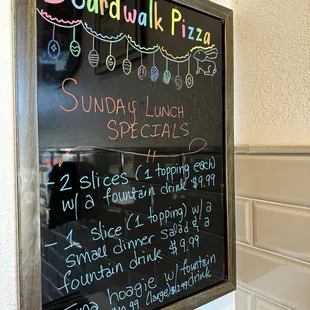 Boardwalk Pizza
SUNDAY LUNCH
SPECIALS
- 2 slices (1 topping each)
w/ a fountain drink $9.99
- 1 slice (1 topping) w/a
small dinner salad & a
fountain drink $9.99
hoagie w/ fountain
(large) $12.99 drink